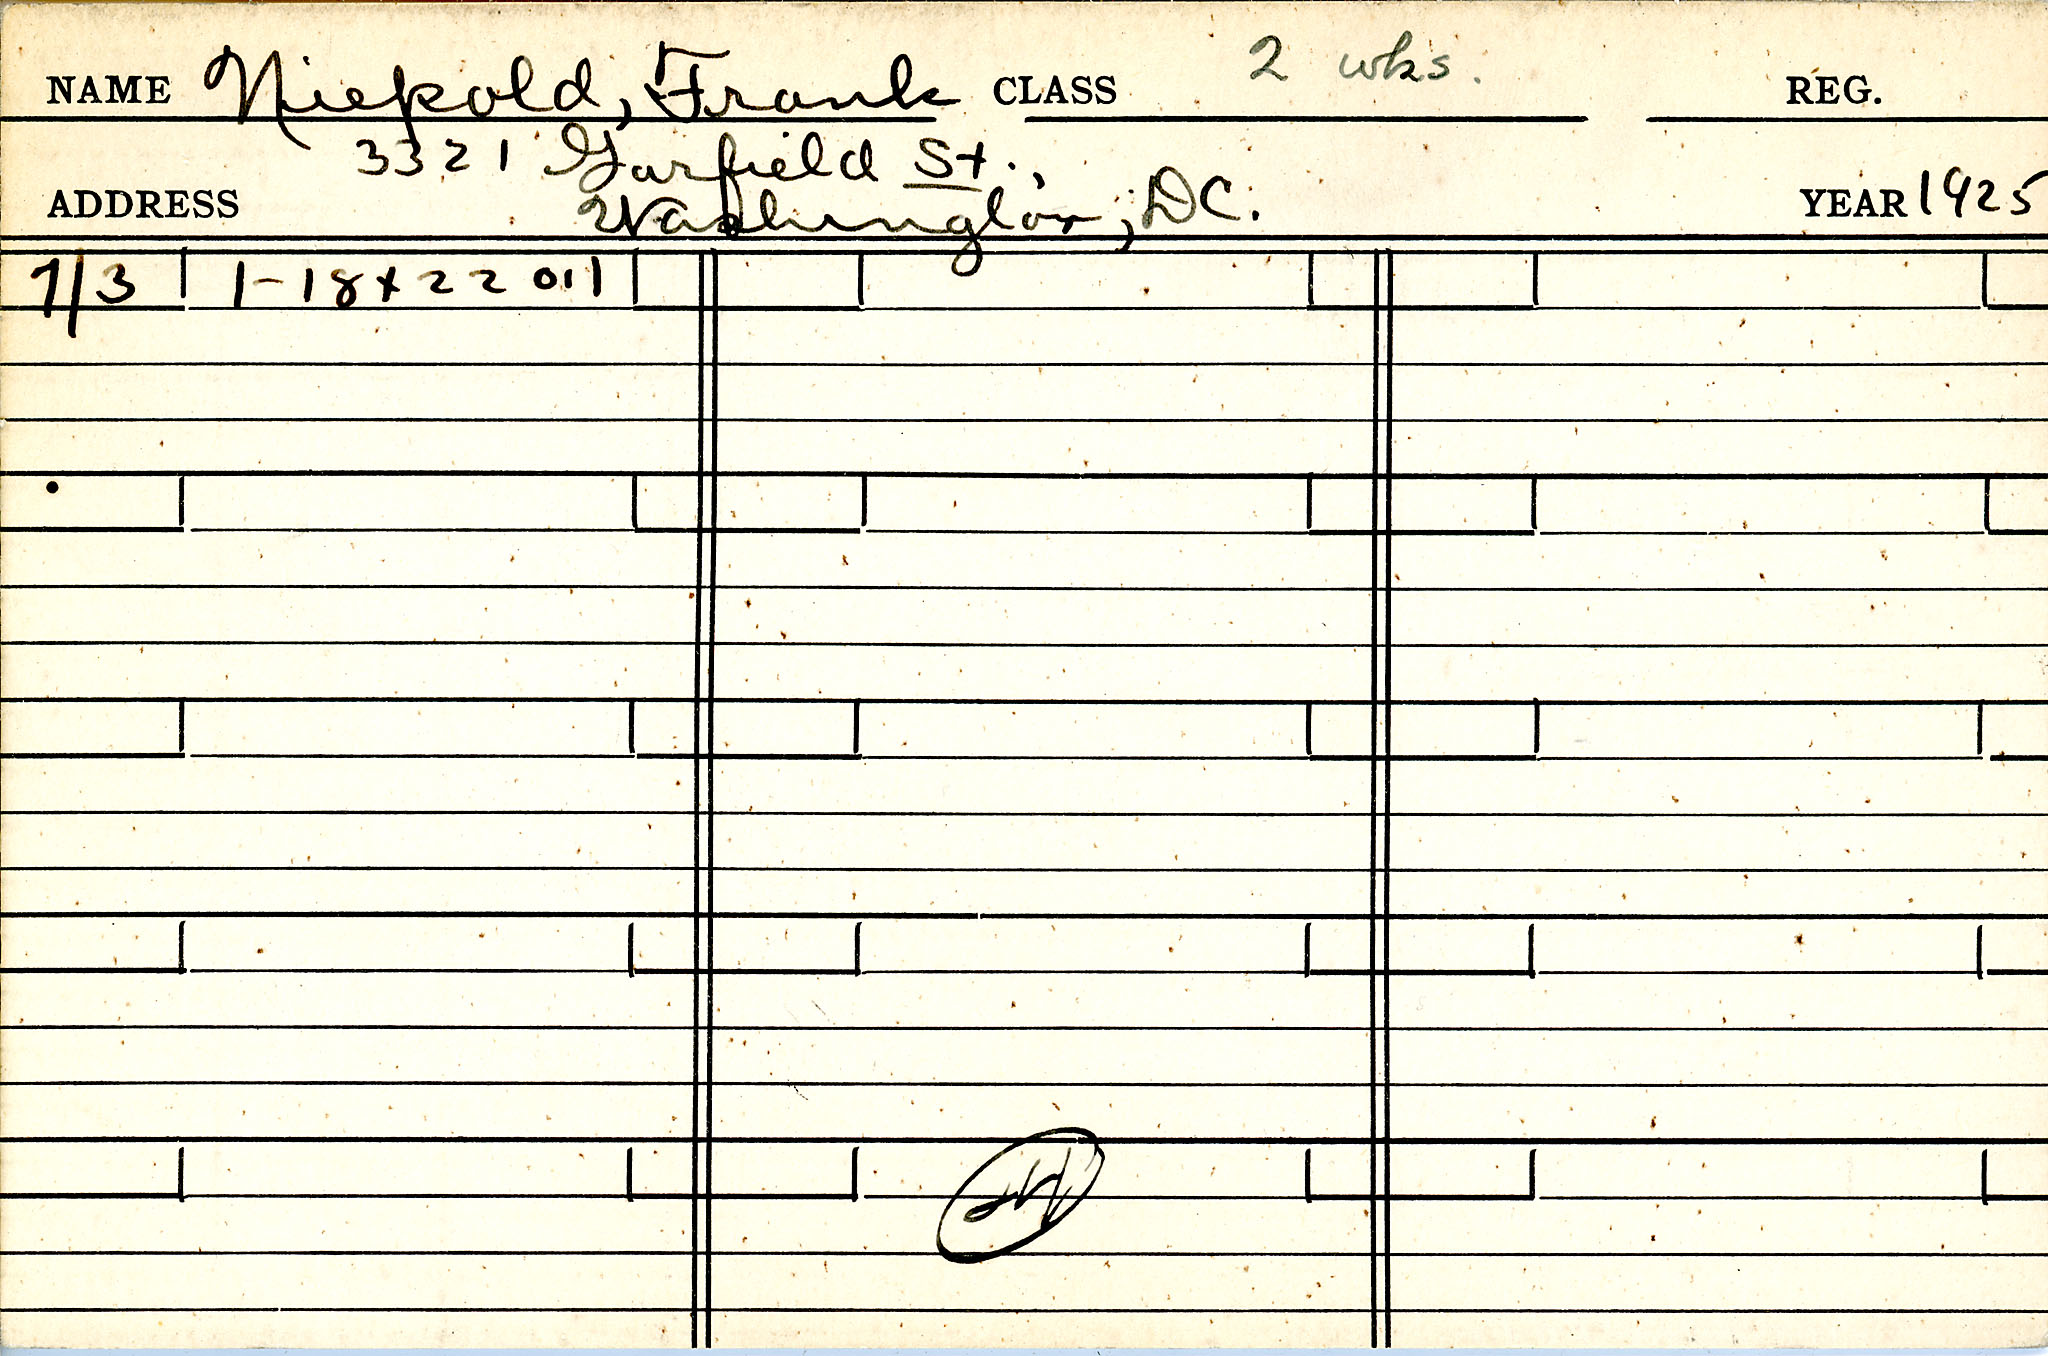 NAME Niepold, Frank CLASS 2 wks. REG.
3321 Garfield St.,
ADDRESS Washington, DC. YEAR 1925
7/3 1-18x22 oil